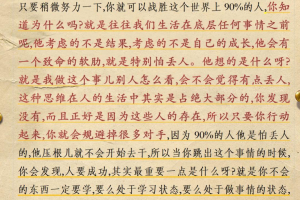 只要稍微努力一下,你就可以战胜这个世界上90%的人,你知
道为什么吗?就是往往我们生活在底层任何事情之前
呢,他考虑的不是结果,考虑的不是自己的成长,他会有
一个致命的软肋,就是特别怕丢人。他想的是什么呀?
就是我做这个事儿别人怎么看,会不会觉得有点丢人,
这种思维在人的生活中其实是占绝大部分的,你发现
没有,而且正好是因为这些人的存在,所以只要你行动
起来,你就会规避掉很多对手,因为90%的人他是怕丢人
的,他压根儿就不会开始去干,所以当你跳出这个事情的时候,
你会发现,人要成功,其实最重要一点是什么呀?就是你不会
的东西一定要学,要么处于学习状态,要么处于做事情的状态,